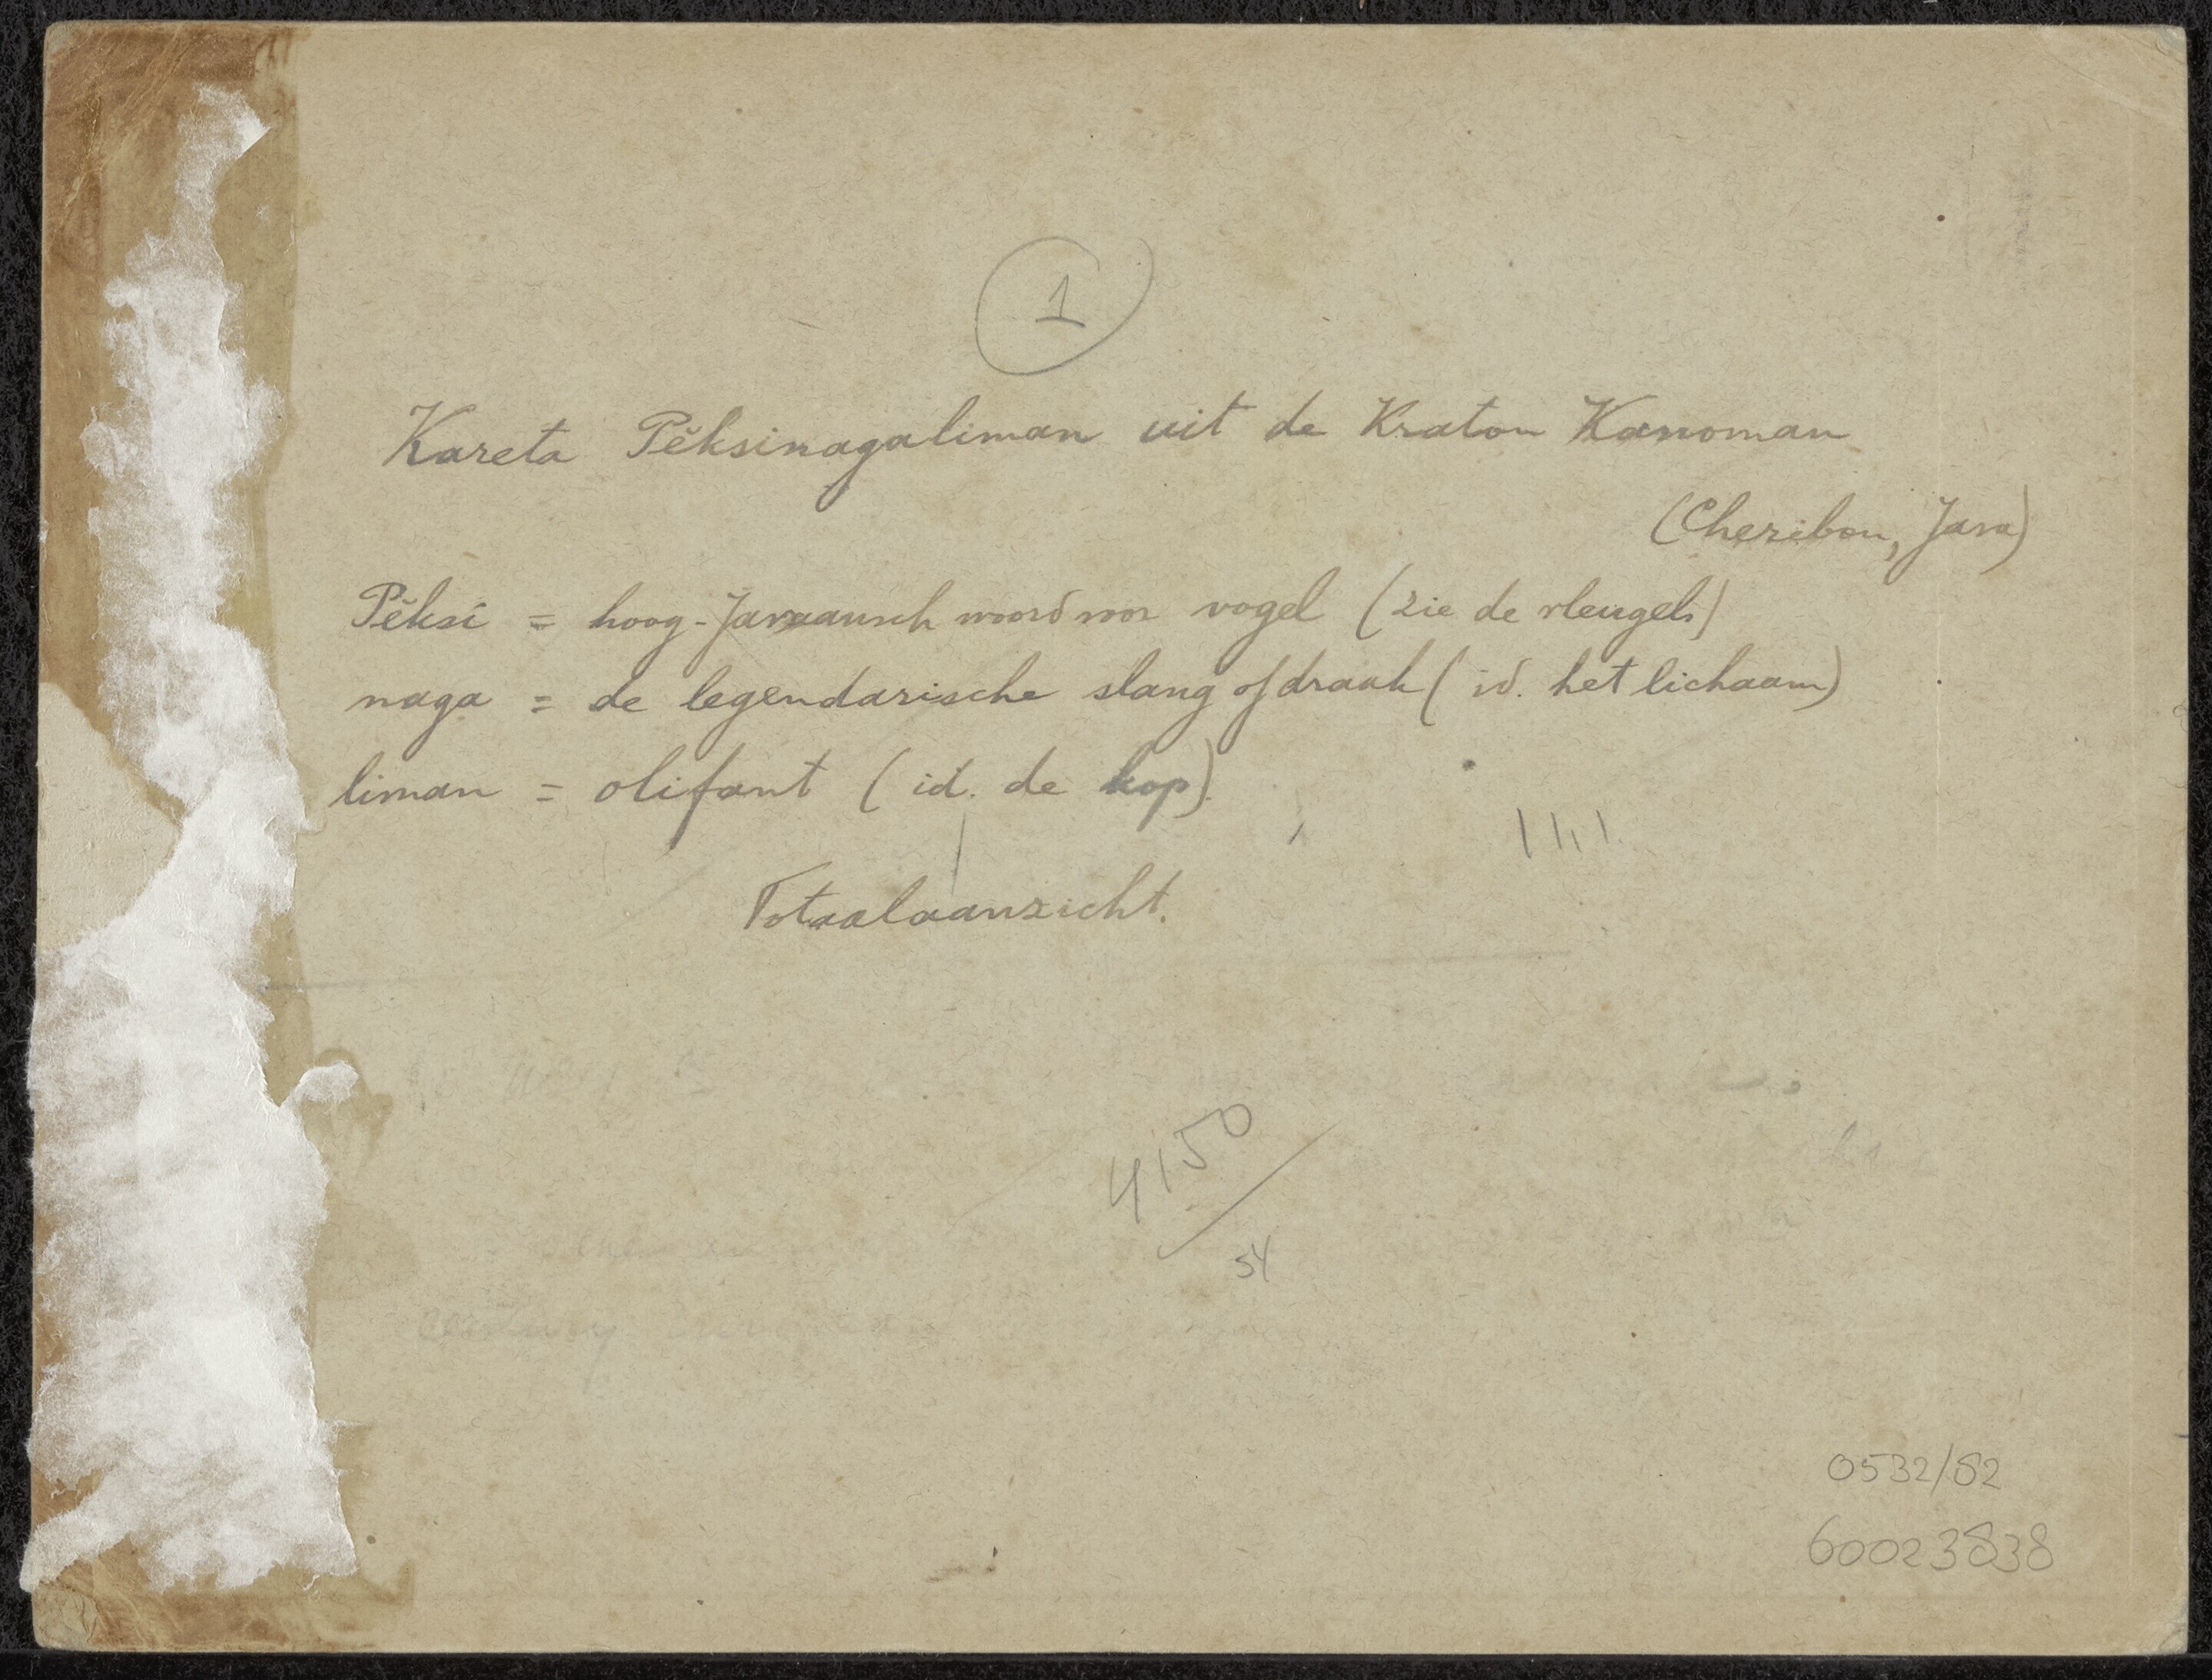 1
Kareta Pĕksinagaliman uit de Kraton Kanoman
(Cheribon, Java)
Pĕksi = hoog-Javaansch woord voor vogel (zie de vleugels)
naga = de legendarische slang of draak (id. het lichaam)
liman = olifant (id. de kop).
Totaalaanzicht.
4150/
54
0532/52
60023838